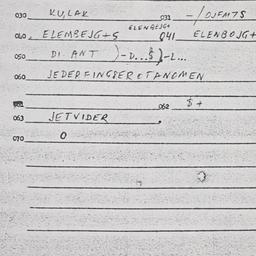 030 KULAK 033 -/OJFM7S
ELENGEJG+
040 ELEMBEJG+S 041 ELENBOJG+
050 DI ANT )-D...$)-L...
060 JEDERFINGBERETANOMEN
062 $+
063 JETVIDER
070 O